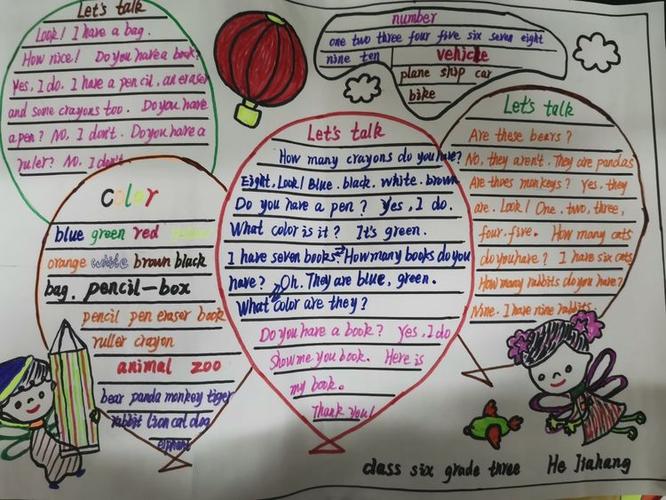 Let's talk
Look! I have a bag.
How nice! Do you have a book?
Yes, I do. I have a pencil, an eraser
and some crayons too. Do you have
a pen? No. I don't. Do you have a
ruler? No. I don't.
number
one two three four five six seven eight
nine ten vehicle
plane ship car
bike
Let's talk
Are these bears?
No, they aren't. They are pandas
Are thoes monkeys? Yes. they
are. Look! One, two, three,
four, five. How many cats
do you have? I have six cats
How many rabbits do you have?
Nine. I have nine rabbits.
Let's talk
How many crayons do you have?
Eight. Look! Blue. black. white. brown
Do you have a pen? Yes, I do.
What color is it? It's green.
I have seven books. How many books do you
have? Oh. They are blue, green.
What color are they?
Do you have a book? Yes. I do
Show me you book. Here is
my book.
Thank you!
color
blue green red yellow
orange white brown black
bag. pencil-box
pencil pen eraser book
ruller crayon
animal zoo
bear panda monkey tiger
rabbit lion cat dog
class six grade three He Jiahang